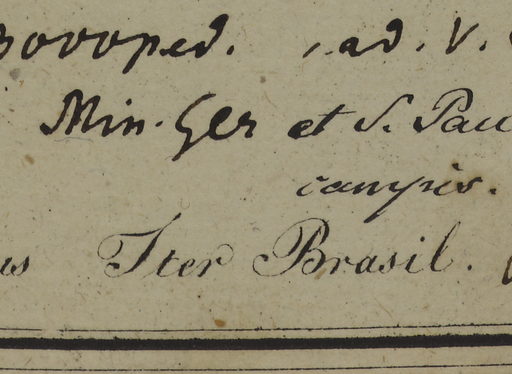 ad. V.
Min. Ger et S. Pau
campis.
us Iter Brasil.